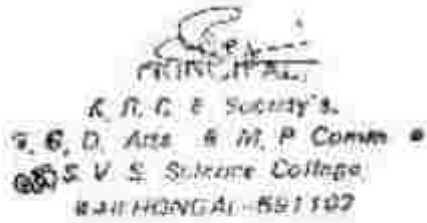 PRINCIPAL,
K. R. C. E Society's.
S. G. D. Arts & M. P Comm &
S. V. S Science College,
BAILHONGAL-591102